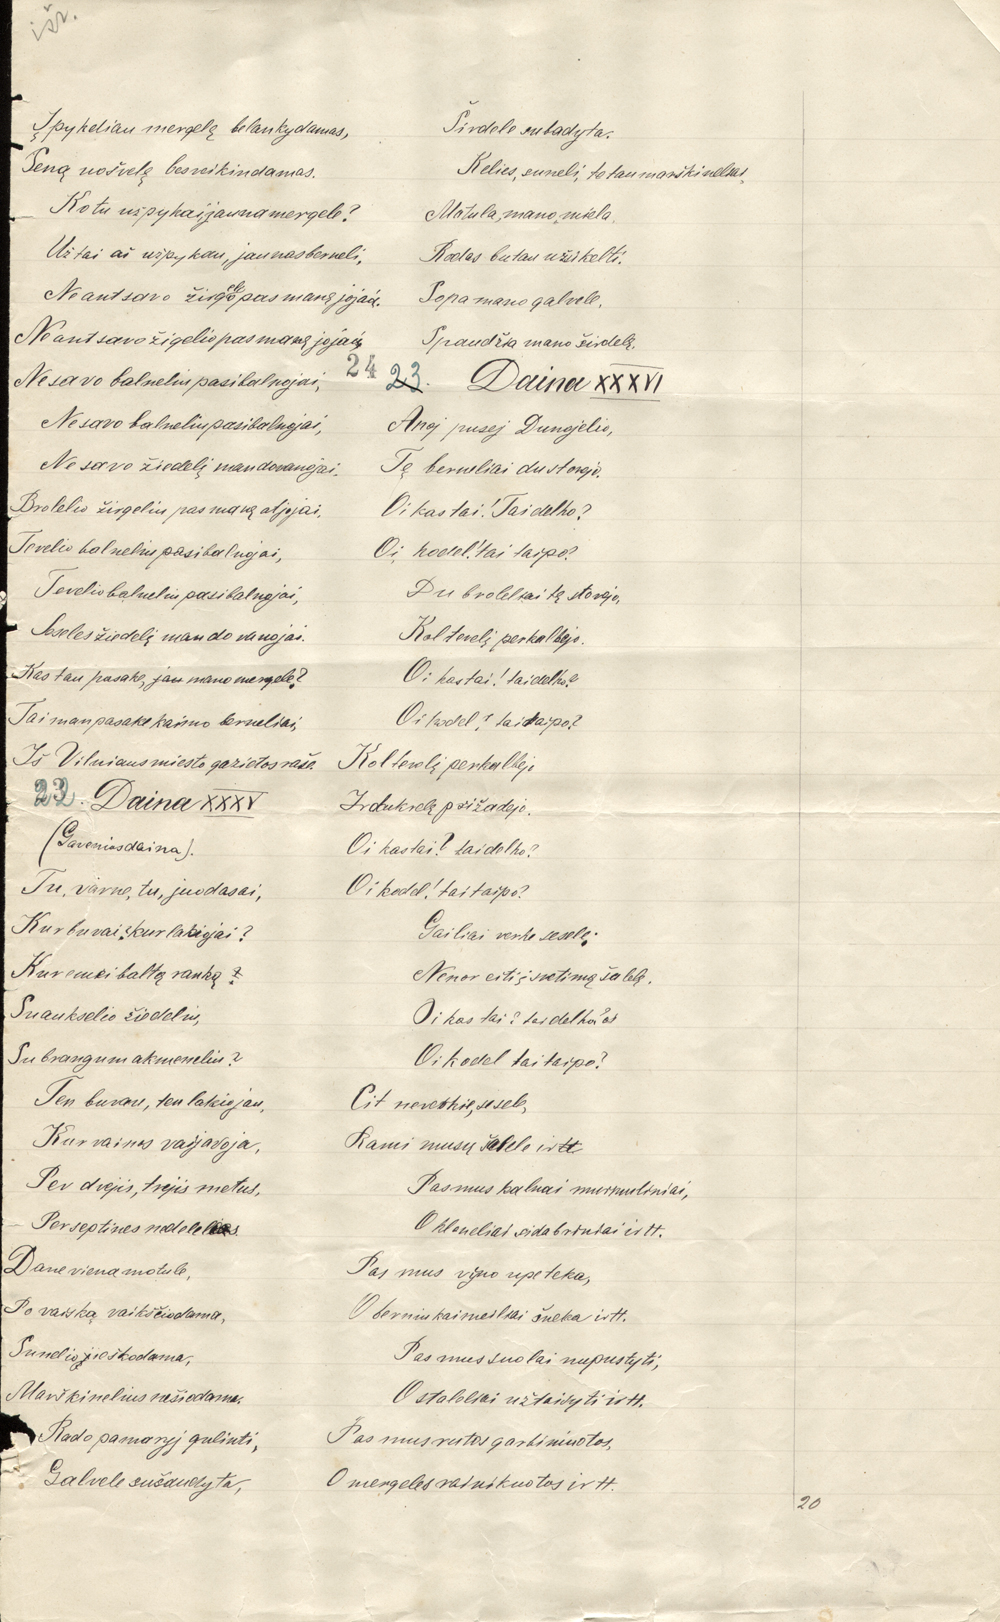 išr.
Įpykeliau mergelę belankydamas,
Seną uošvelę besveikindamas.
Ko tu užpykai, jauna mergele?
Už tai aš užpykau, jaunas berneli,
Ne ant savo žirgelo pas manę jojai.
Ne ant savo žigelio pas manę jojai,
Ne savo balneliu pasibalnojai,
Ne savo balneliu pasibalnojai,
Ne savo žiedelį man dovanojai.
Brolelio žirgeliu pas manę atjojai,
Tevelio balneliu pasibalnojai,
Tevelio balneliu pasibalnojai,
Seseles žiedelį man dovanojai.
Kas tau pasakė, jau mano mergele?
Tai man pasake kaimo berneliai,
Iš Vilniaus miesto gazietos raše.
23. Daina XXXV
(Gavenios daina).
Tu, varne, tu, juodasai,
Kur buvai, kur lakiojai?
Kur emei baltą ranką?
Su aukselio žiedeliu,
Su brangum akmeneliu?
Ten buvau, ten lakiojau,
Kur vainas vajavoja,
Per dvejis, trejis metus,
Per septines nedeleles.
Dane viena motule,
Po vaiską vaikščiodama,
Sunelio jieškodama,
Marškinelius nešiodama.
Rado pamaryj gulinti,
Galvele sušaudyta,
Širdele subadyta.
Kelies, suneli, to tau marškinelius,
Motula, mano, miela,
Rodas butau užsikelti.
Sopa mano galvele,
Spaudžia mano širdelę.
24 23. Daina XXXVI
Anoj pusej Dunojelio,
Tę berneliai du stovejo.
Oi kas tai! Tai delko?
Oi, kodel! tai taipo?
Du broleliai tę stovejo,
Kol tevelį perkalbejo.
Oi kas tai! tai delko?
Oi kodel? tai taipo?
Kol tevelį perkalbejo
Ir dukrelę prižadejo.
Oi kas tai? tai delko?
Oi kodel! tai taipo?
Gailiai verke sesele;
Nenor eiti į svetimą šalelę.
Oi kas tai? tai delko
Oi kodel tai taipo?
Cit neverkie, sesele,
Rami musų šalele ir tt
Pas mus kalnai murmuliniai,
O kloneliai sidabriniai ir tt.
Pas mus vyno upe teka,
O berniukai meiliai šneka ir tt.
Pas mus suolai nupustyti,
O staleliai užtaisyti ir tt.
Pas mus rutos garbiniuotos,
O mergeles vainikuotos ir tt.
20